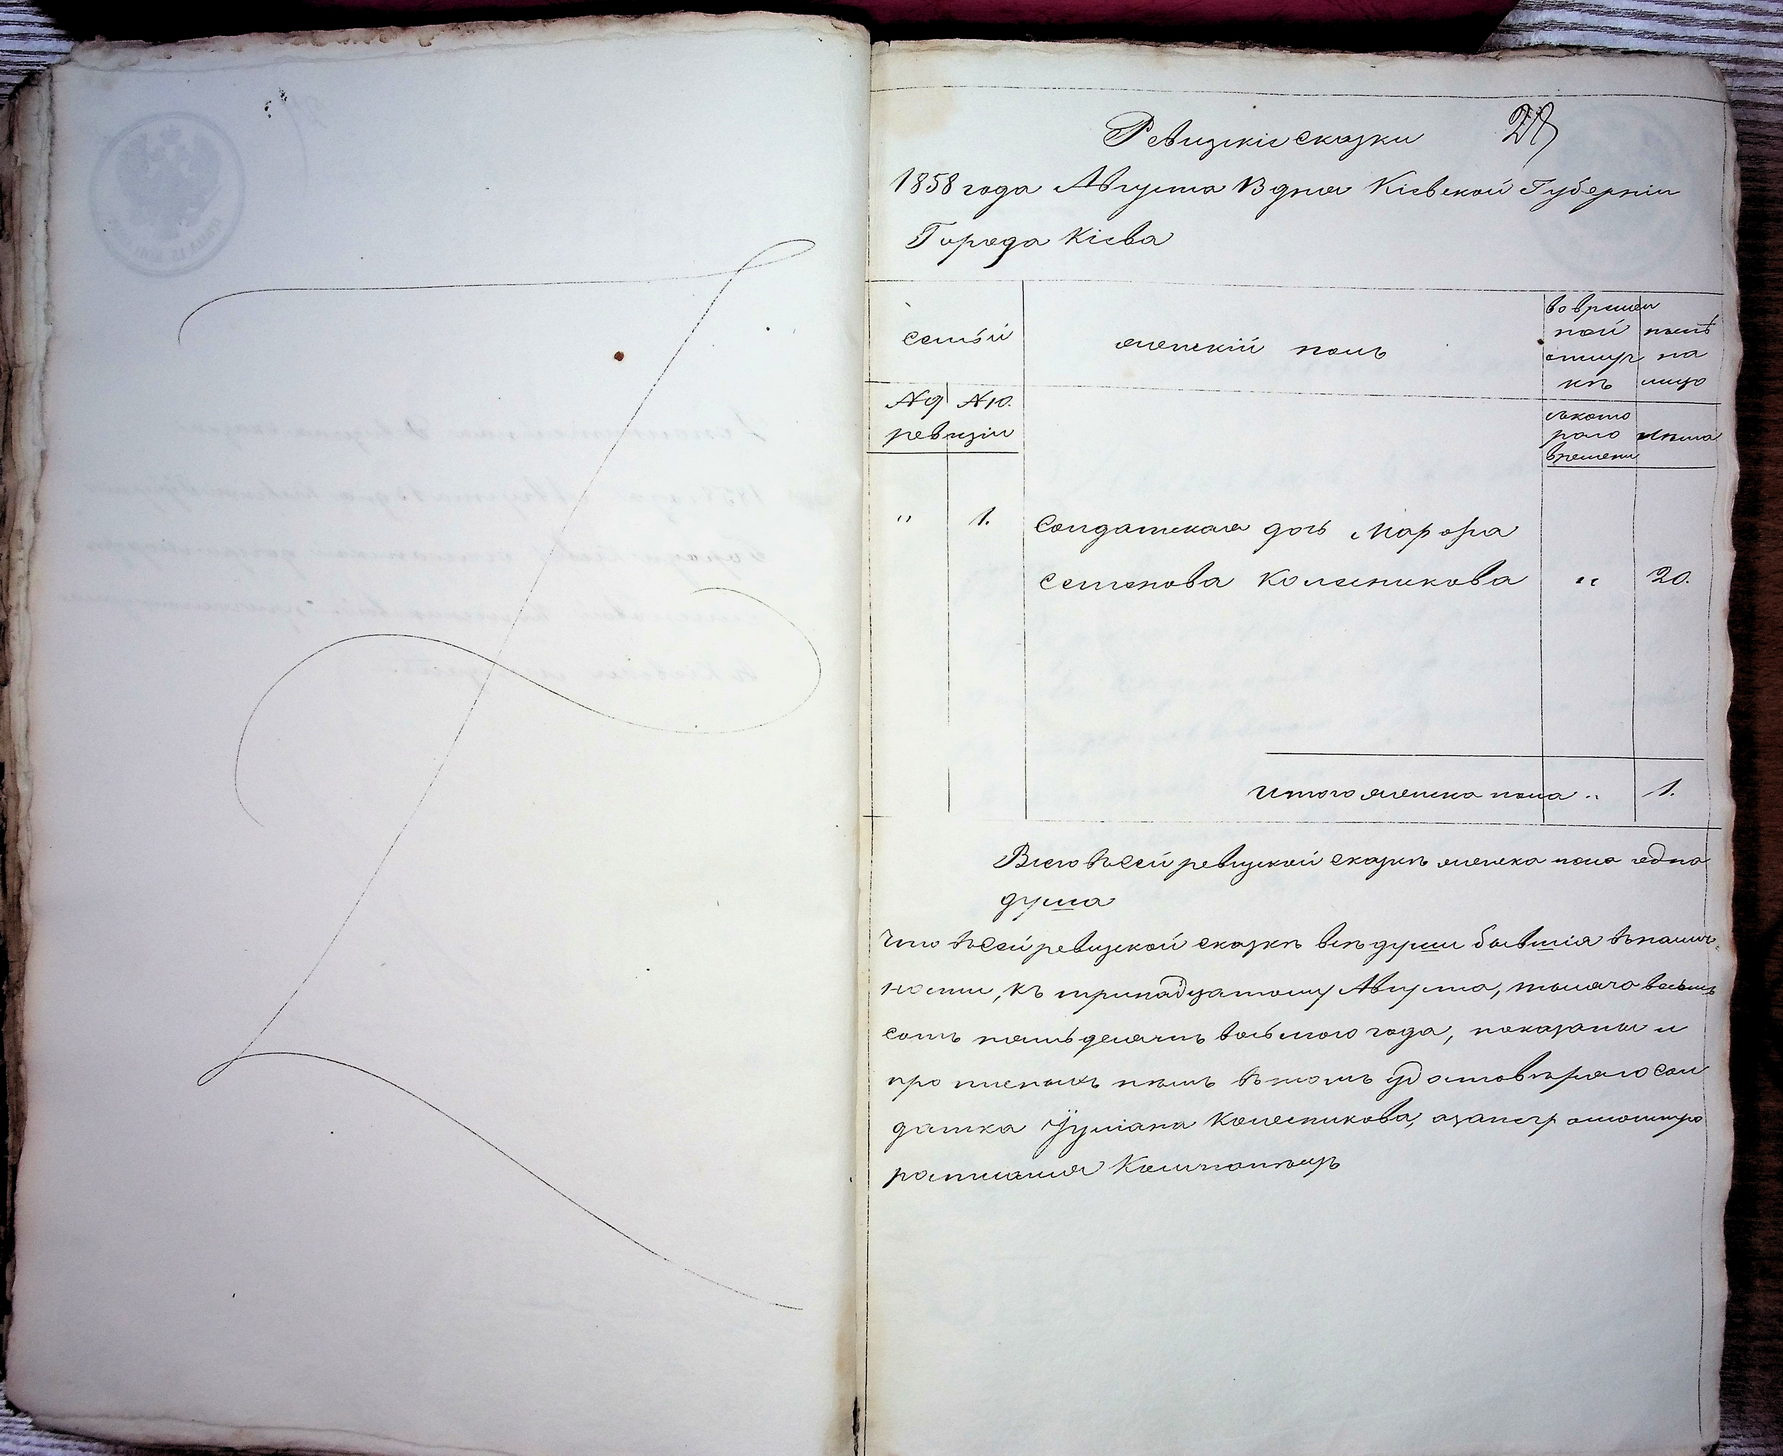 Ревизкіе сказки
1858 года Августа 13 дня Кіевской Губерніи
Города Кіева
семьи
женскій полъ
во времен
ной
отлуч
кѣ
нынѣ
на
лицо
№ 9 № 10.
ревизіи
съ кото
раго
времени
лѣта
" 1. Солдатская дочь Марфа
Семенова Колесникова " 20.
Итого женска пола " 1.
Всего въ сей ревизской сказкѣ женска пола една
душа
Что въ сей ревизской сказкѣ всѣ души бывшія въ налич
ности, къ тринадцатому Августа, тысячо восемь
сотъ пятьдесятъ восьмого года, показаны и
прописныхъ нѣтъ въ томъ удостовѣряю сол
датка Уліана Колесникова, а за негр
росписался